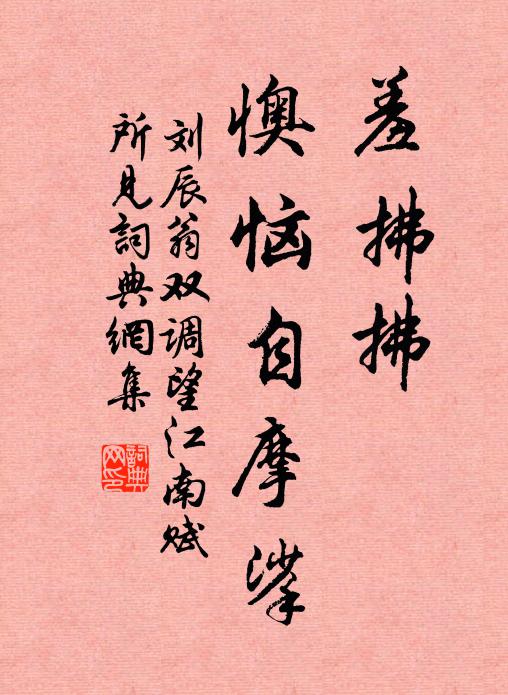 羞拂拂
懊恼自摩挲
刘辰翁双调望江南赋
所见詞典網集
詞典网印